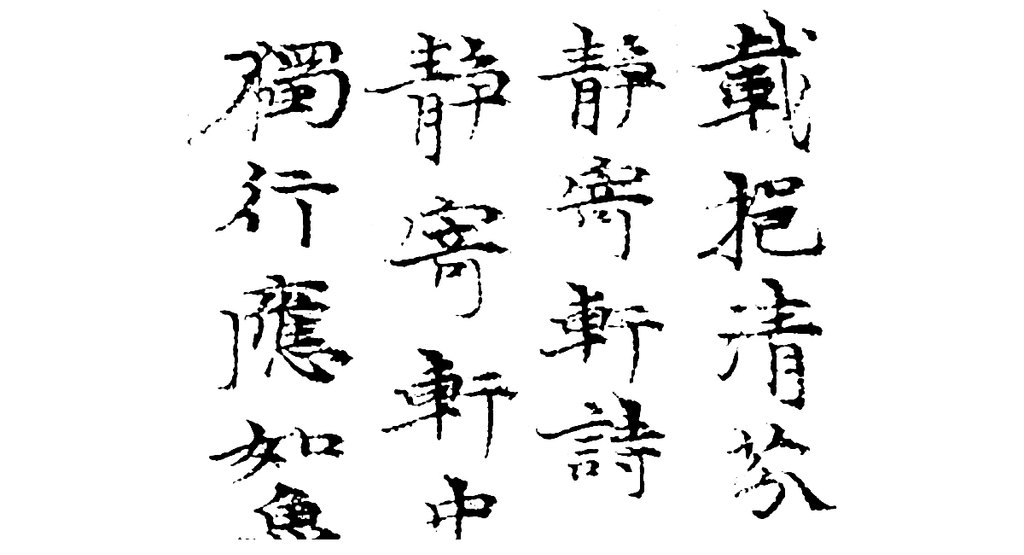 載挹清芬
靜寄軒詩
靜寄軒中
獨行應如魚